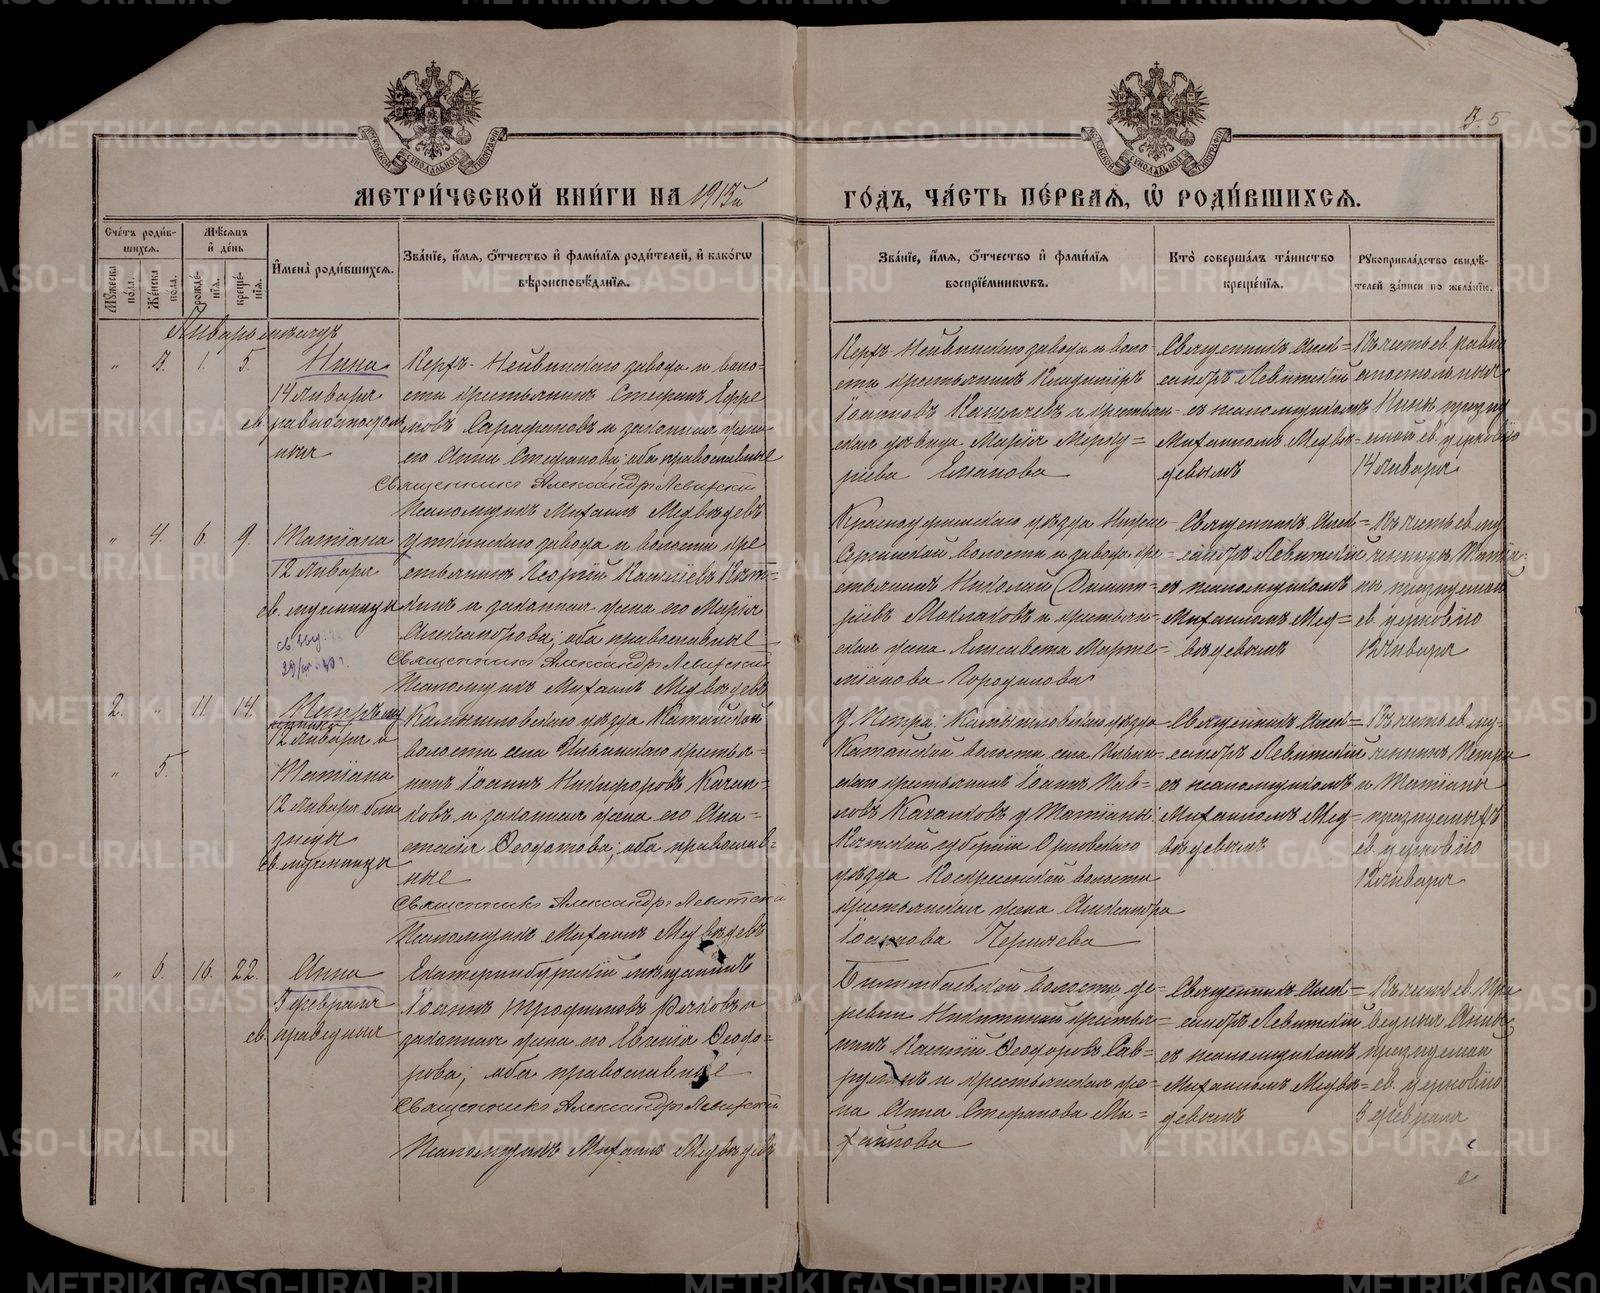 МЕТРИ́ЧЕСКОЙ КНИ́ГИ НА 1913й
ГО́ДЪ, ЧА́СТЬ ПЕ́РВАЯ, Ѡ РОДИ́ВШИХСЯ.
5
Сче́тъ роди́в-
шихся.
Мѣ́сяцъ
и де́нь
Му́жеска по́ла.
Же́нска по́ла.
рожде́-нія.
креще́-нія.
Имена́ роди́вшихся.
Зва́ніе, и́мя, о́тчество и фами́лія роди́телей, и како́гѡ
вѣроисповѣ́данія.
Зва́ніе, и́мя, о́тчество и фами́лія
воспріе́мниковъ.
Кто̀ соверша́лъ та́инство
креще́нія.
Рукоприкла́дство свидѣ́-
телей за́писи по жела́нію.
Январь мѣсяцъ
" 3. 1. 5. Нина
14 Января
св. равноапостоль
ныя
Верхъ-Нейвинскаго завода и воло-
сти крестьянинъ Стефанъ Ефре
мовъ Сарафановъ и законная жена
его Анна Стефанова; оба православные
Священникъ Александръ Левитскій
Псаломщикъ Михаилъ Медвѣдевъ
Верхъ-Нейвинскаго завода и воло-
сти крестьянинъ Владиміръ
Іоанновъ и крестьян-
ская дѣвица Марія Мерку=
ріева Еманова
Священникъ Алек=
сандръ Левитскій
съ псаломщикомъ
Михаиломъ Медвѣ=
девымъ
Въ честь св. равно
апостольныя
Нины празд
емой св. церковію
14 Января
" 4. 6. 9. Татіана
12 Января
св. мученицы
Уткинскаго завода и волости кре
стьянинъ Георгій
и законная жена его Марія
Александрова; оба православные
Священникъ Александръ Левитскій
Псаломщикъ Михаилъ Медвѣдевъ
Красноуфимскаго уѣзда Нижне-
Сергинской волости и завода кре=
стьянинъ Николай Димит=
ріевъ Моклаковъ и крестьян=
ская жена Елисавета Марте=
міанова Городилова
Священникъ Алек=
сандръ Левитскій
съ псаломщикомъ
Михаиломъ Мед=
вѣдевымъ
Въ честь св. му
ченицы Татіа
ны празднуемой
св. церковію
12 Января
2. " 11. 14. Петръ муч
12 Января и
" 5. Татіана
12 Января близ
нецы
св. мученицы
Камышловскаго уѣзда Катайской
волости села Ильинскаго крестья=
нинъ Іоаннъ Никифоровъ Качал=
ковъ и законная жена его Ана=
стасія Ѳеодотова; оба православ=
ные
Священникъ Александръ Левитскій
Псаломщикъ Михаилъ Медвѣдевъ
У Петра: Камышловскаго уѣзда
Катайской волости села Ильин=
скаго крестьянинъ Іоаннъ Пав=
ловъ Качалковъ у Татіаны:
Вятской губерніи Орловскаго
уѣзда Воскресенской волости
крестьянская жена Александра
Іоаннова
Священникъ Алек=
сандръ Левитскій
съ псаломщикомъ
Михаиломъ Мед=
вѣдевымъ
Въ честь св. му-
ченикъ Петра
и Татіаны
празднуемыхъ
св. церковію
12 Января
" 6. 16. 22. Анна
3 февраля
св. праведныя
Екатеринбургскій мѣщанинъ
Іоаннъ Трофимовъ Волковъ и
законная жена его Евгенія Ѳеодо=
рова; оба православные
Священникъ Александръ Левитскій
Псаломщикъ Михаилъ Медвѣдевъ
Билимбаевской волости де=
ревни Никитиной крестья=
нинъ Василій Ѳеодоровъ
и крестьянская же=
на Анна Стефанова Ми=
хайлова
Священникъ Алек=
сандръ Левитскій
съ псаломщикомъ
Михаиломъ Медвѣ=
девымъ
Въ честь св. Пра
ведныя Анны
празднуемой
св. церковію
3 февраля
METRIKI.GASO-URAL.RU